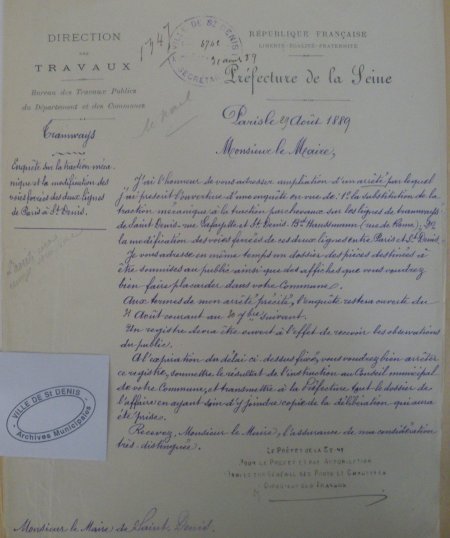 DIRECTION
DES
TRAVAUX
Bureau des Travaux Publics
du Département et des Communes
Tramways
Enquête sur la traction méca-
nique et la modification des
voies ferrées des deux lignes
de Paris à St Denis.
1347
VILLE DE ST DENIS
31 août 89
SECRÉT
RÉPUBLIQUE FRANÇAISE
LIBERTÉ-ÉGALITÉ-FRATERNITÉ
Préfecture de la Seine
Paris le 29 Août 1889
Monsieur le Maire,
J'ai l'honneur de vous adresser ampliation d'un arrêté par lequel
j'ai prescrit l'ouverture d'une enquête en vue de 1° la substitution de la
traction mécanique à la traction par chevaux sur les lignes de tramways
de Saint Denis-rue Lafayette et St Denis-Bd Haussmann (rue de Rome), 2°
la modification des voies ferrées de ces deux lignes entre Paris et St Denis.
Je vous adresse en même temps un dossier des pièces destinées à
être soumises au public ainsi que des affiches que vous voudrez
bien faire placarder dans votre Commune.
Aux termes de mon arrêté précité, l'enquête restera ouverte du
31 Août courant au 30 7bre suivant.
Un registre devra être ouvert à l'effet de recevoir les observations
du public.
A l'expiration du délai ci-dessus fixé, vous voudrez bien arrêter
ce registre, soumettre le résultat de l'instruction au Conseil municipal
de votre Commune, et transmettre à la Préfecture tout le dossier de
l'affaire en ayant soin d'y joindre copie de la délibération qui aura
été prise.
Recevez, Monsieur le Maire, l'assurance de ma considération
très distinguée.
LE PRÉFET DE LA SEINE
POUR LE PRÉFET ET PAR AUTORISATION
INSPECTEUR GÉNÉRAL DES PONTS ET CHAUSSÉES
DIRECTEUR DES TRAVAUX
VILLE DE ST DENIS
Archives Municipales
Monsieur le Maire de Saint Denis.